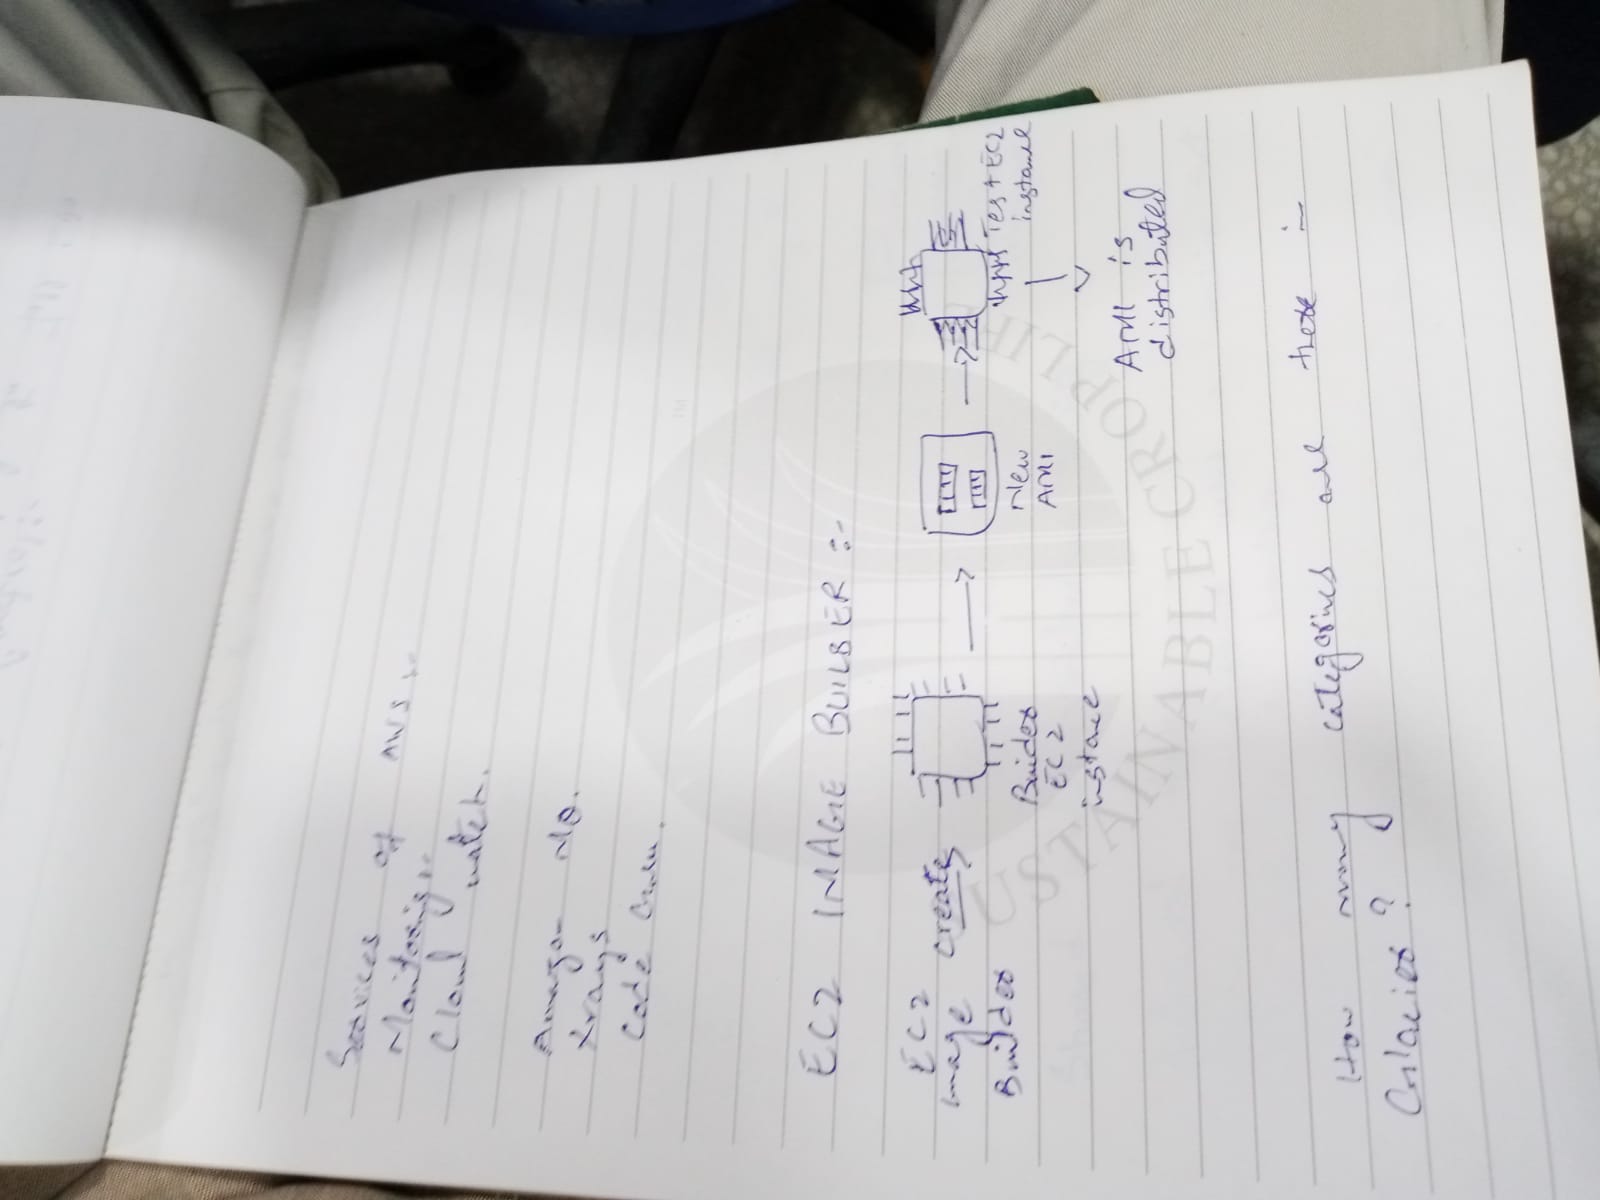 Services of AWS :-
Monitoring :-
Cloud watch.
Amazon MQ.
Xrays
Code Guru.
EC2 IMAGE BUILBER :-
EC2 Image Builder
create
Buider EC2 instance
New AMI
Test EC2 instance
AMI is distributed
How many categories are there in
?
TM
USTAINABLE CROPLIF